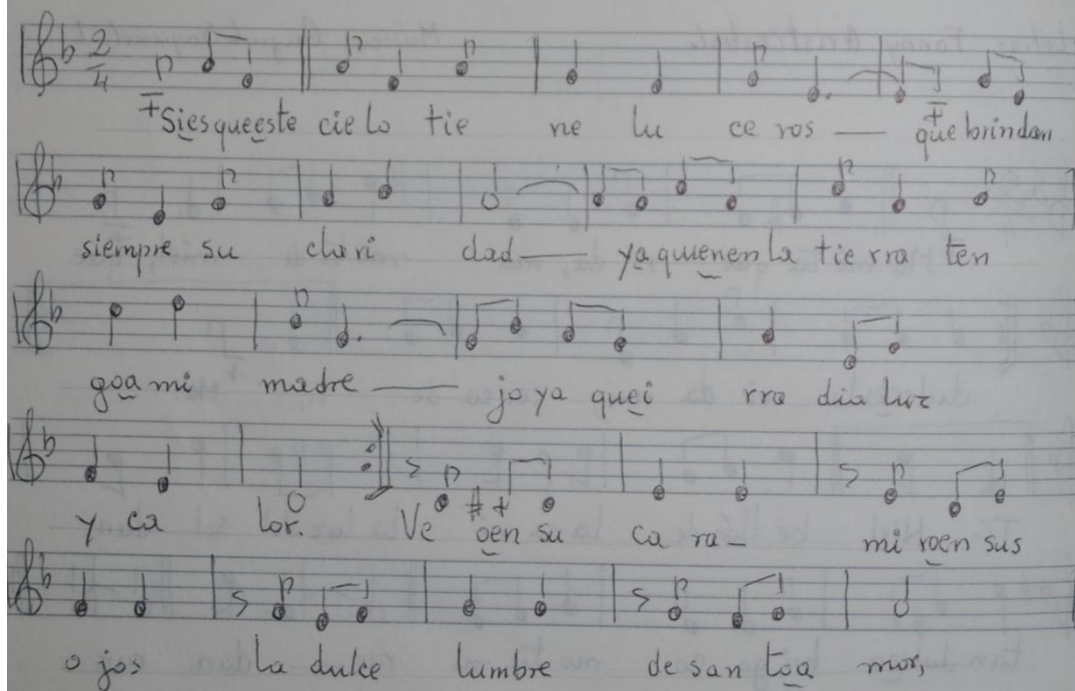 2/4
Siesqueeste cielo tie ne lu ce ros — que brindan
siempre su clari dad — yaquienenla tie rra ten
goa mi madre — joya quei rra dia luz
y ca lor. Ve oen su ca ra — mi roen sus
o jos la dulce lumbre de san toa mor,